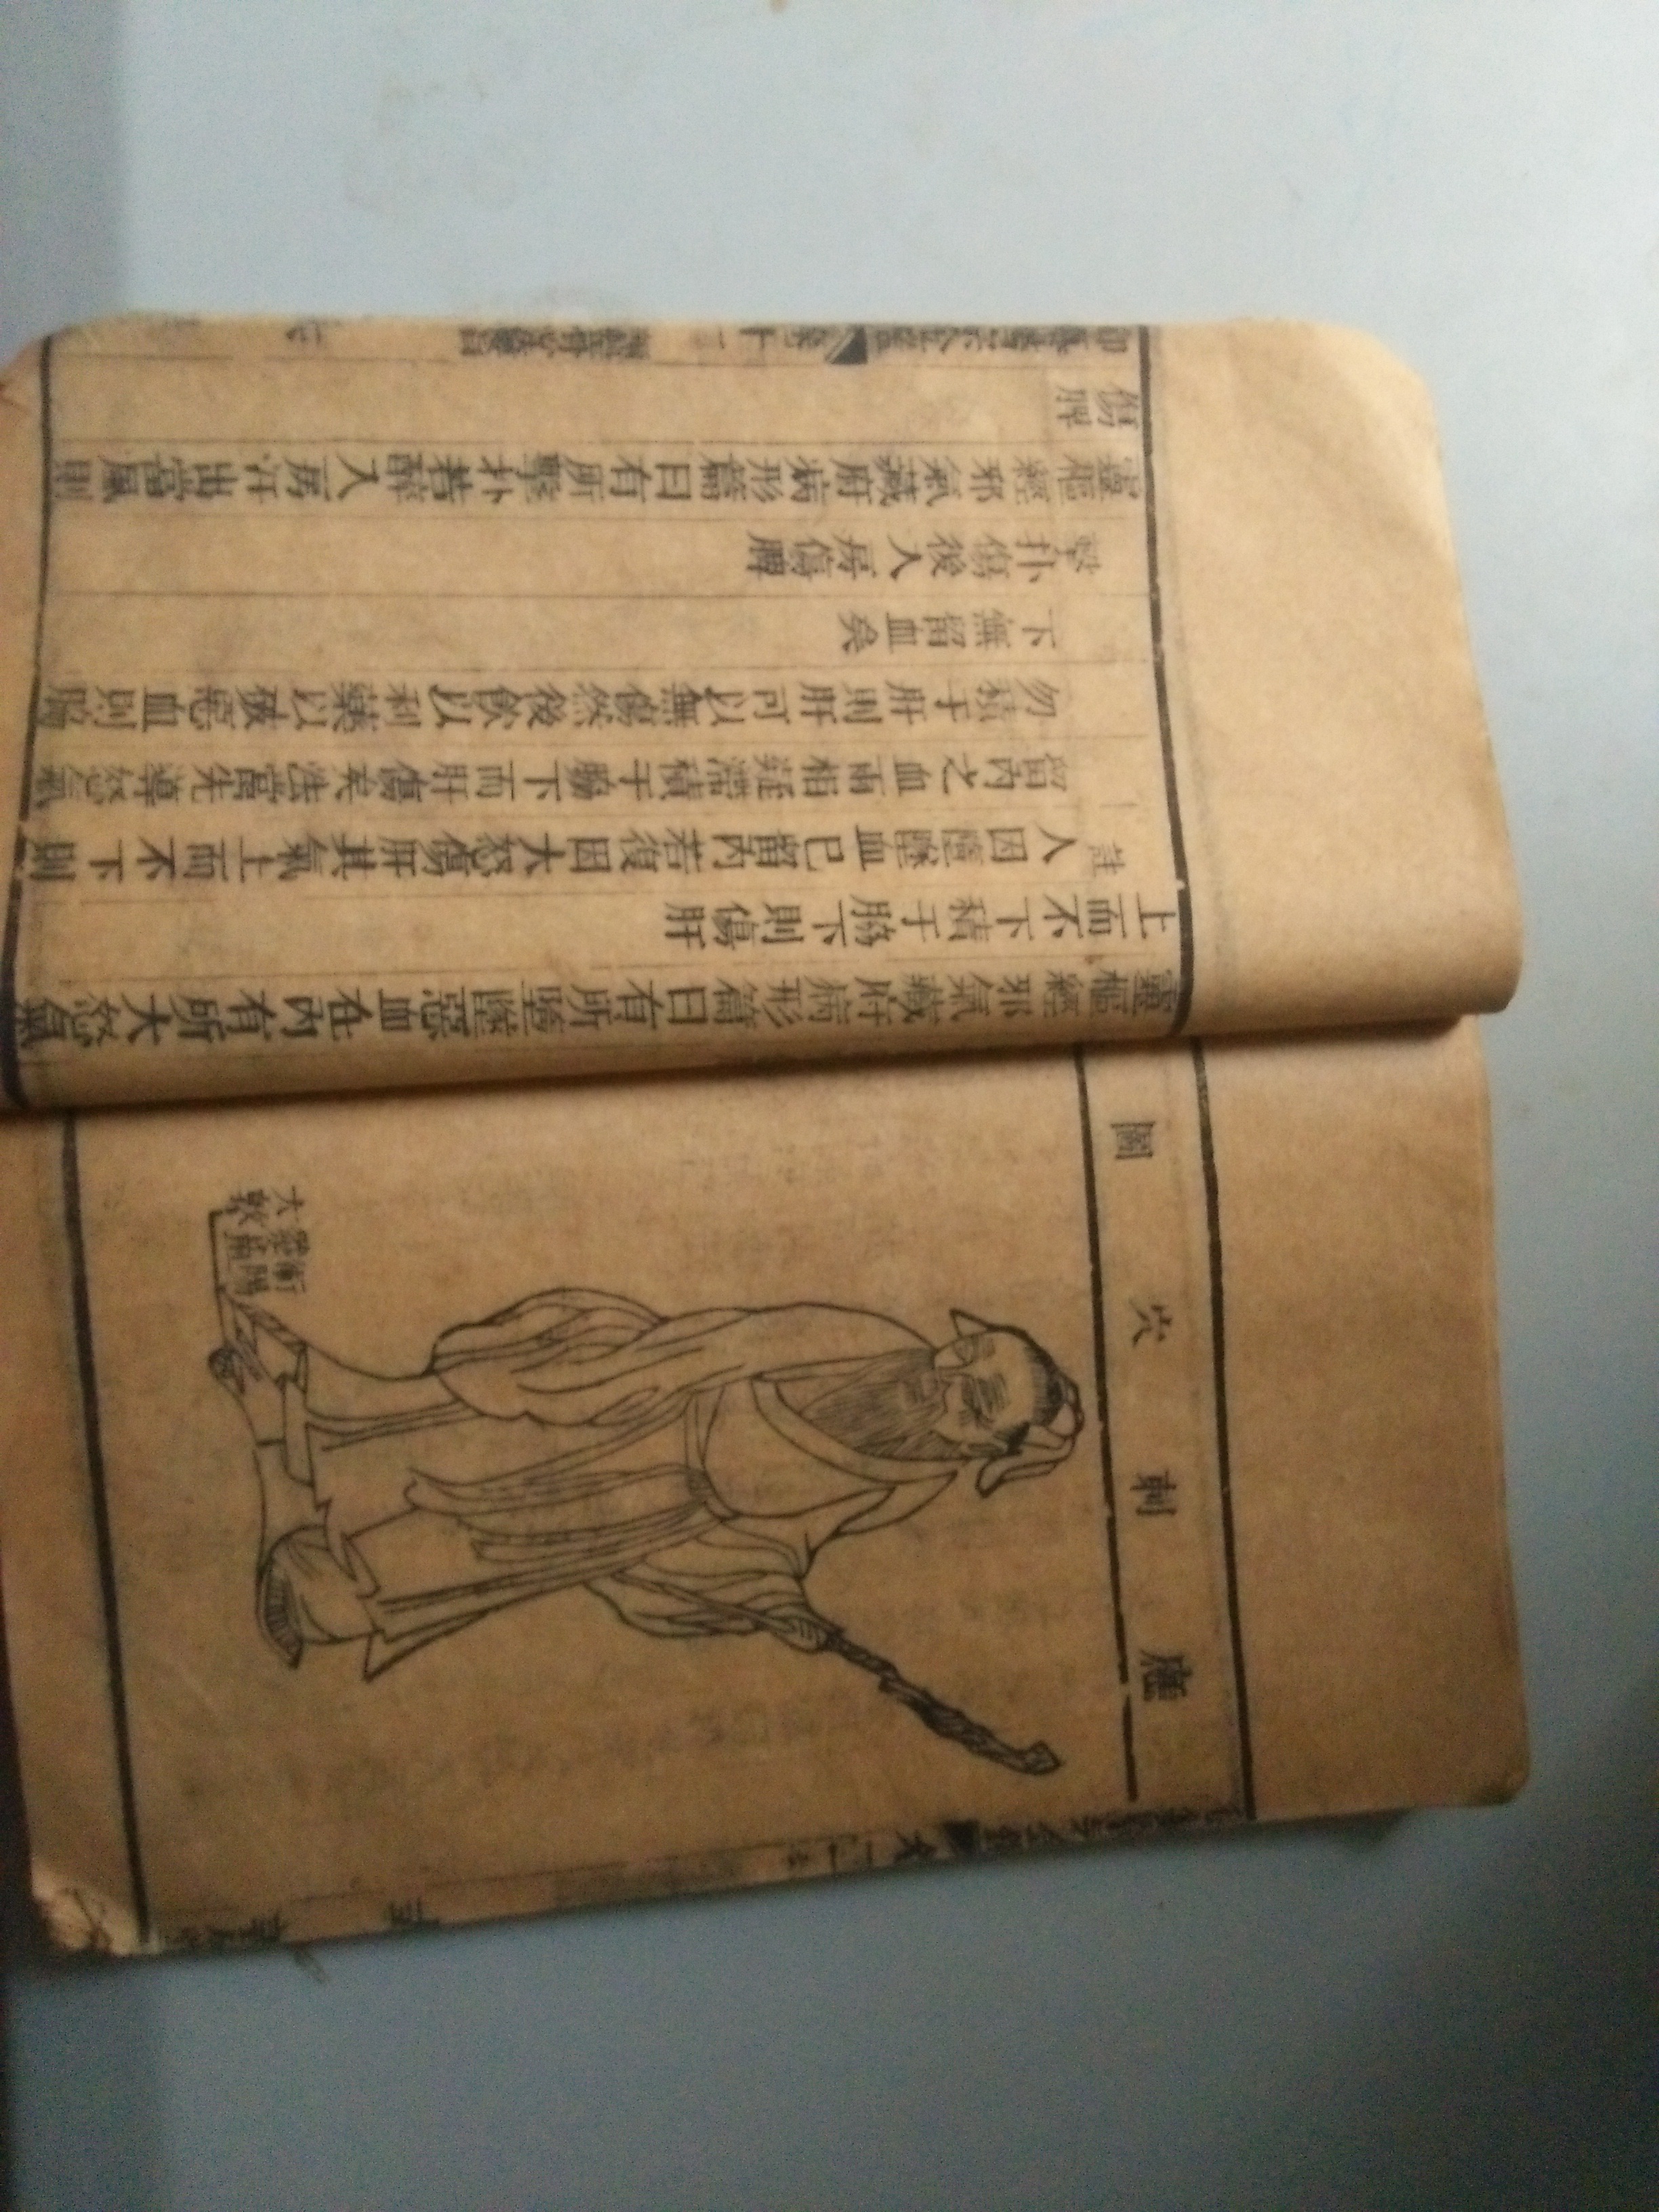 刺穴圖
大敦
衝陽
靈樞經邪氣藏府病形篇曰有所墮墜惡血在內有所大怒氣
上而不下積于脇下則傷肝
註人因墮墜血已留內若復因大怒傷肝其氣上而不下則
留內之血兩相凝滯積于脇下而肝傷矣法當先導怒氣
勿積于肝則肝可以無傷然後飲以利藥以破惡血則脇
下無留血矣
擊扑傷後入房傷脾
靈樞經邪氣藏府病形篇曰有所擊扑若醉入房汗出當風則
傷脾